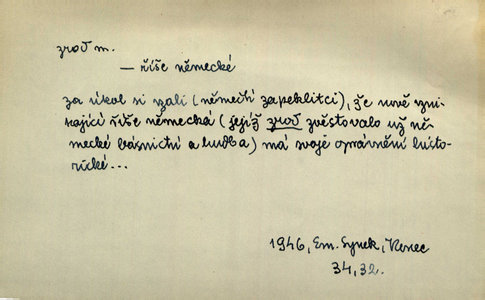 zrod m.
— říše německé
za úkol si vzali (němečtí zapeklitci), že nově vzni-
kající říše německá (jejíž zrod zvěstovalo už ně-
mecké básnictví a hudba) má svoje oprávnění histo-
rické...
1946, Em. Synek, Konec
34, 32.